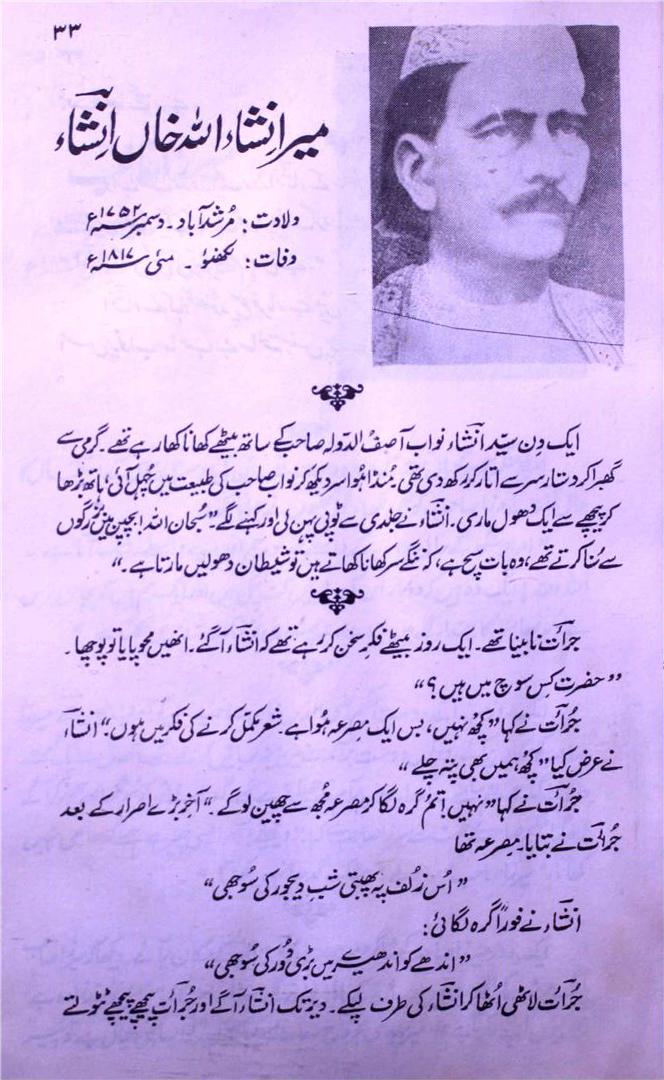 ۳۳
میر انشاء اللہ خاں انشاء
ولادت: مُرشد آباد۔ دسمبر ۱۷۵۲ء
وفات: لکھنؤ۔ مئی ۱۸۱۷ء
ایک دن سیّد انشاء نواب آصفُ الدّولہ صاحب کے ساتھ بیٹھے کھانا کھا رہے تھے۔ گرمی سے
گھبرا کر دستار سر سے اتار کر رکھ دی تھی۔ مُنڈا ہوا سر دیکھ کر نواب صاحب کی طبیعت میں چُہل آئی، ہاتھ بڑھا
کر پیچھے سے ایک دھول ماری۔ انشاء نے جلدی سے ٹوپی پہن لی اور کہنے لگے ”سُبحان اللہ! بچپن میں بزرگوں
سے سُنا کرتے تھے، وہ بات سچ ہے، کہ ننگے سر کھانا کھاتے ہیں تو شیطان دھولیں مارتا ہے۔“
جرأت نابینا تھے۔ ایک روز بیٹھے فکرِ سخن کر رہے تھے کہ انشاء آ گئے۔ انھیں محو پایا تو پوچھا۔
”حضرت کس سوچ میں ہیں؟“
جُرأت نے کہا ”کچھ نہیں، بس ایک مصرعہ ہوا ہے۔ شعر مکمل کرنے کی فکر میں ہوں۔“ انشاء
نے عرض کیا ”کچھ ہمیں بھی پتہ چلے“
جُرأت نے کہا ”نہیں! تم گرہ لگا کر مصرعہ مُجھ سے چھین لو گے۔“ آخر بڑے اصرار کے بعد
جُرأت نے بتایا۔ مصرعہ تھا
”اُس زلف پہ پھبتی شبِ دیجور کی سُوجھی“
انشاء نے فوراً گرہ لگائی:
”اندھے کو اندھیرے میں بڑی دُور کی سُوجھی“
جُرأت لاٹھی اُٹھا کر انشاء کی طرف لپکے۔ دیر تک انشاء آگے اور جُرأت پیچھے پیچھے ٹٹولتے